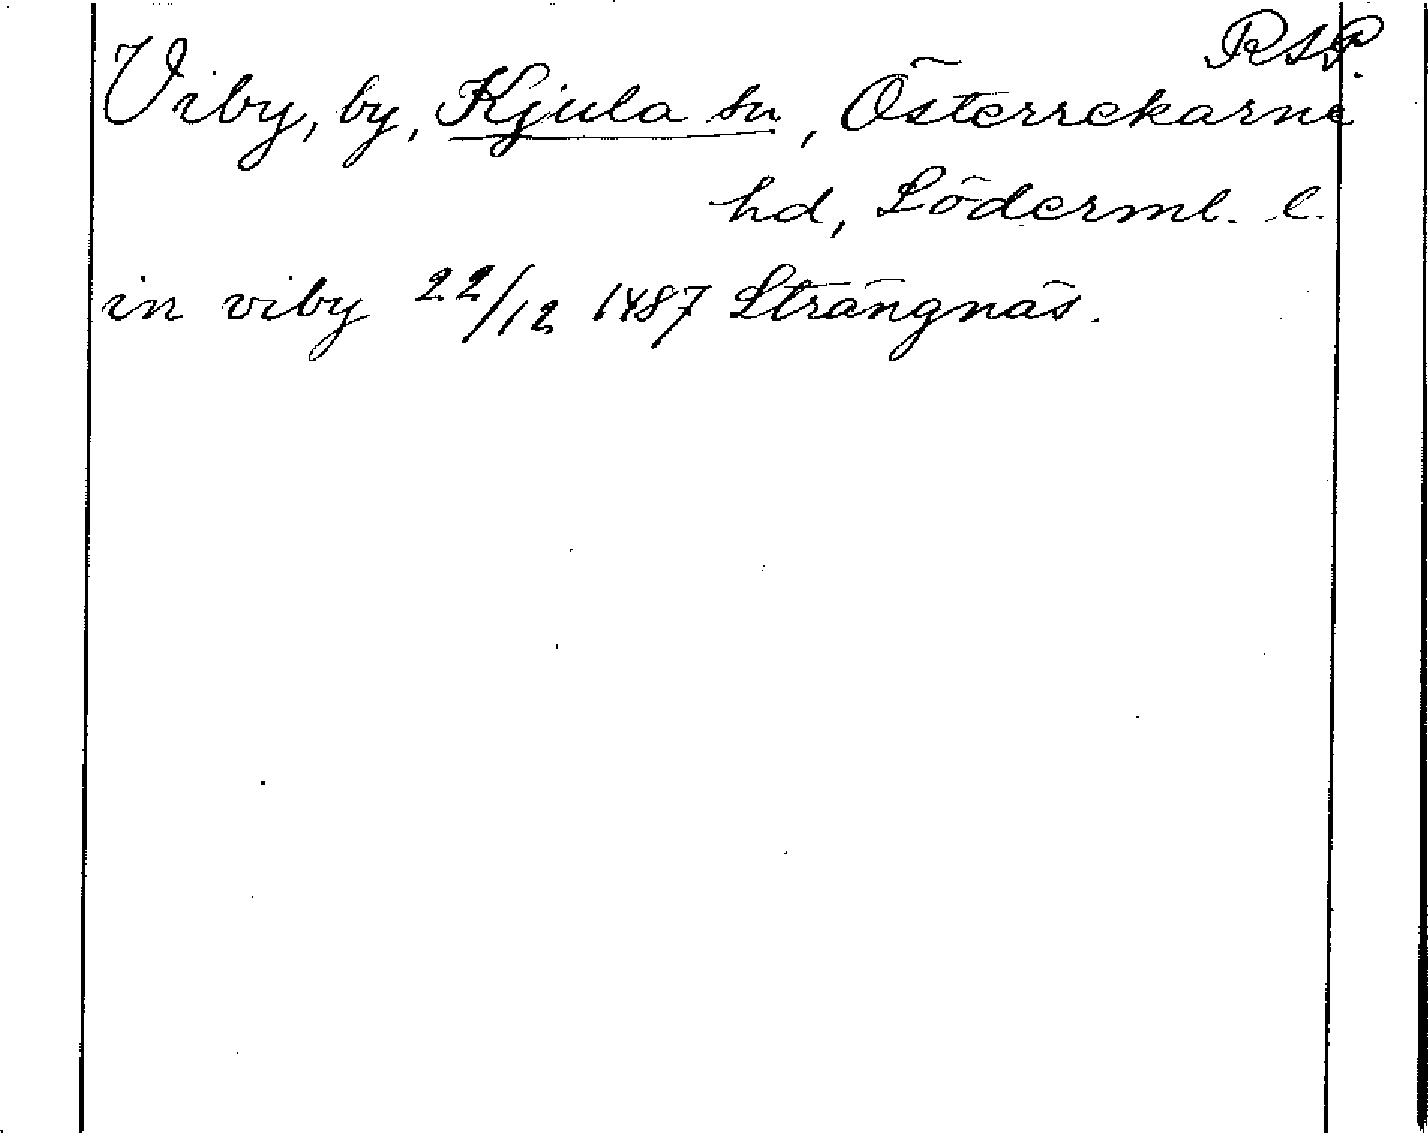 RAP.
Viby, by, Kjula sn, Österrekarne
hd, Söderml. l.
in viby 22/12 1487 Strängnäs.